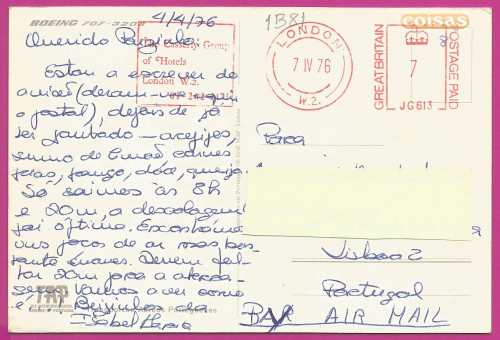 BOEING 707-320B
4/4/76
Querido
The Casserly Group
of Hotels
London W.2.
Estou a escrever do
avião (deram-me aqui
o postal), depois de já
ter jantado —
sumo de limão, carnes
frias, frango, doce, queijo.
Só saímos às 8h
e 20m, a descolagem
foi óptima. Encontrámos
uns poços de ar mas
suaves. Devem fal-
tar 20m para a
Vamos a ver como
é. Beijinhos da
Isabel Maria
TAP
1B81
LONDON
7 IV 76
W.2.
GREAT BRITAIN
7
POSTAGE PAID
JG613
coisas
Para
Lisboa 2
Portugal
BAY AIR MAIL